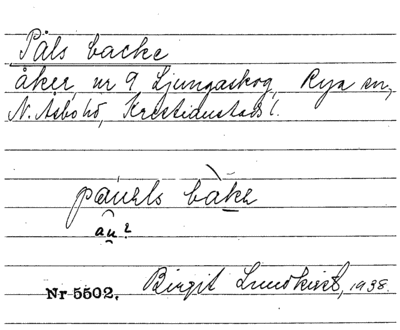 Påls backe
åker, nr 9 Ljungaskog, Rya sn,
N. Åsbo hd, Kristianstads l.
pauels bàke
au?
Nr 5502. Birgit Lundkvist, 1938.